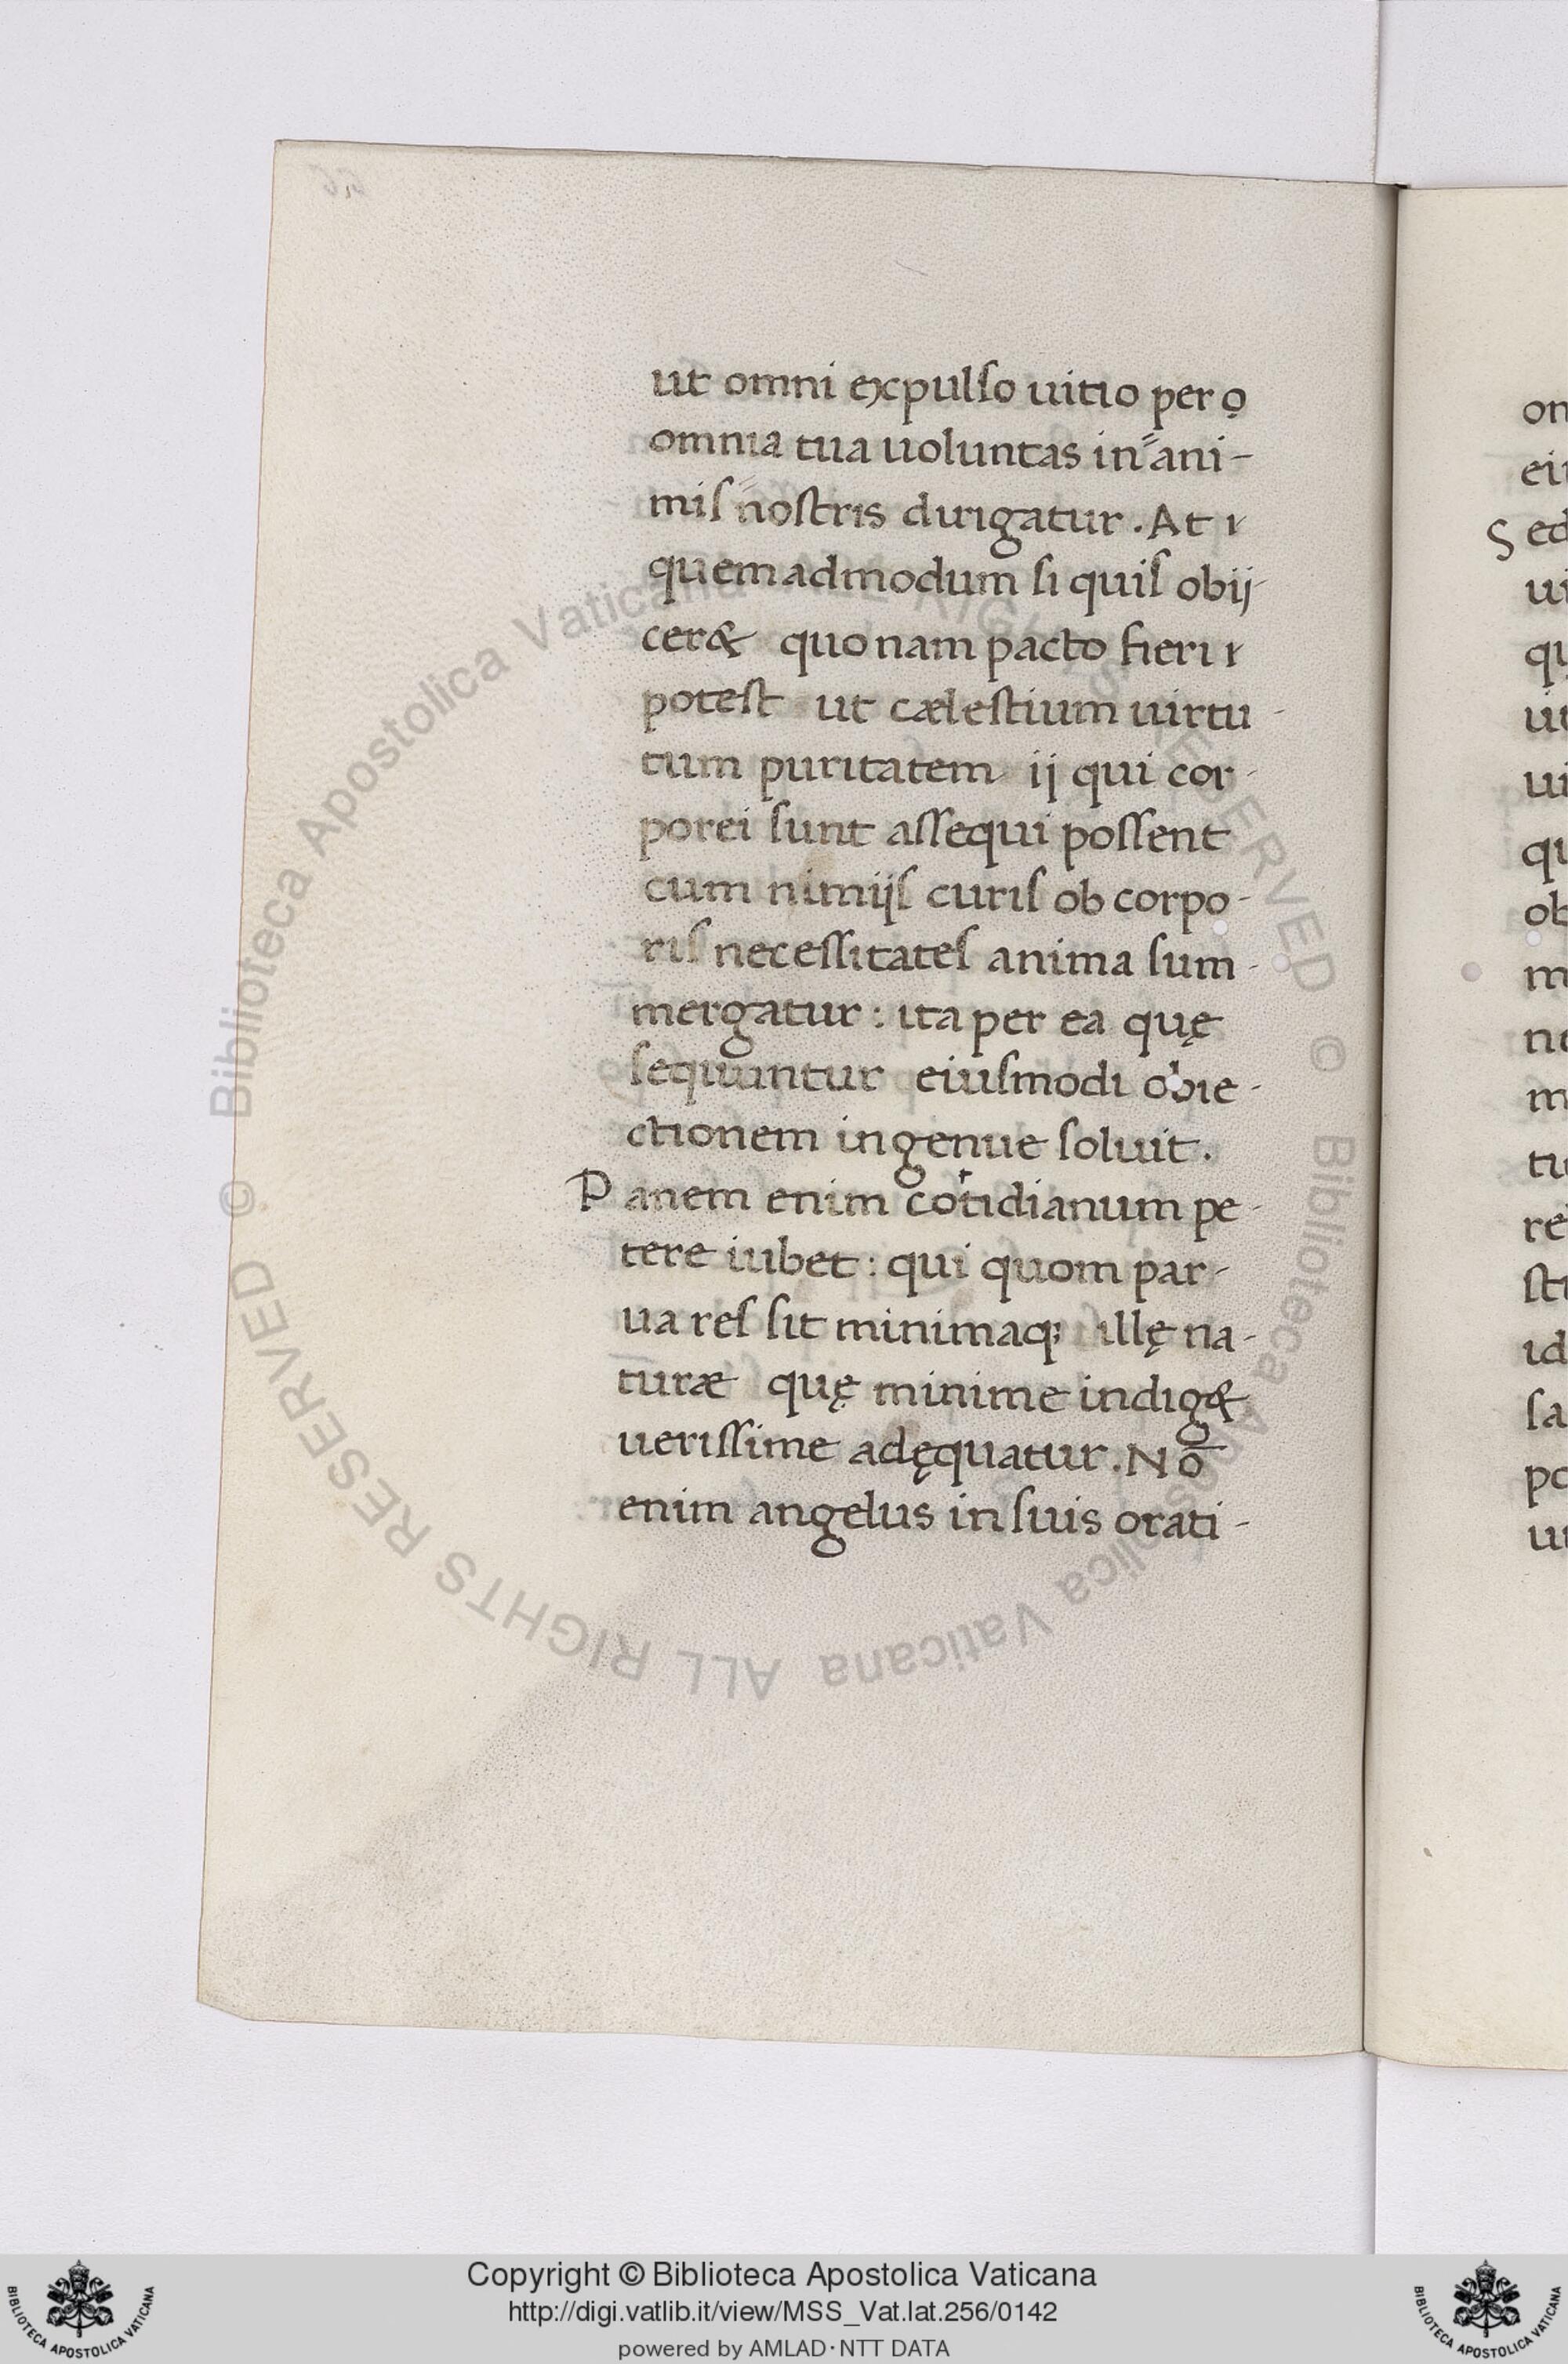 ut omni expulso uitio per o
omnia tua uoluntas in ani-
mis nostris dirigatur. At
quemadmodum si quis obij-
ceret quonam pacto fieri
potest ut cælestium uirtu-
tum puritatem ij qui cor-
porei sunt assequi possent
cum nimijs curis ob corpo-
ris necessitates anima sum-
mergatur: ita per ea quę
sequuntur eiusmodi obie-
ctionem ingenue soluit.
Panem enim cotidianum pe-
tere iubet: qui quom par-
ua res sit minimaq; illę na-
turæ quę minime indiget
uerissime adęquatur. Nō
enim angelus in suis orati-
on
ei
Sed
ui
qu
ut
ui
qu
ob
m
ne
m
tu
re
sti
id
sa
po
ut
© Biblioteca Apostolica Vaticana ALL RIGHTS RESERVED © Biblioteca Apostolica Vaticana ALL RIGHTS RESERVED
Copyright © Biblioteca Apostolica Vaticana
http://digi.vatlib.it/view/MSS_Vat.lat.256/0142
powered by AMLAD·NTT DATA
BIBLIOTECA APOSTOLICA VATICANA
BIBLIOTECA APOSTOLICA VATICANA